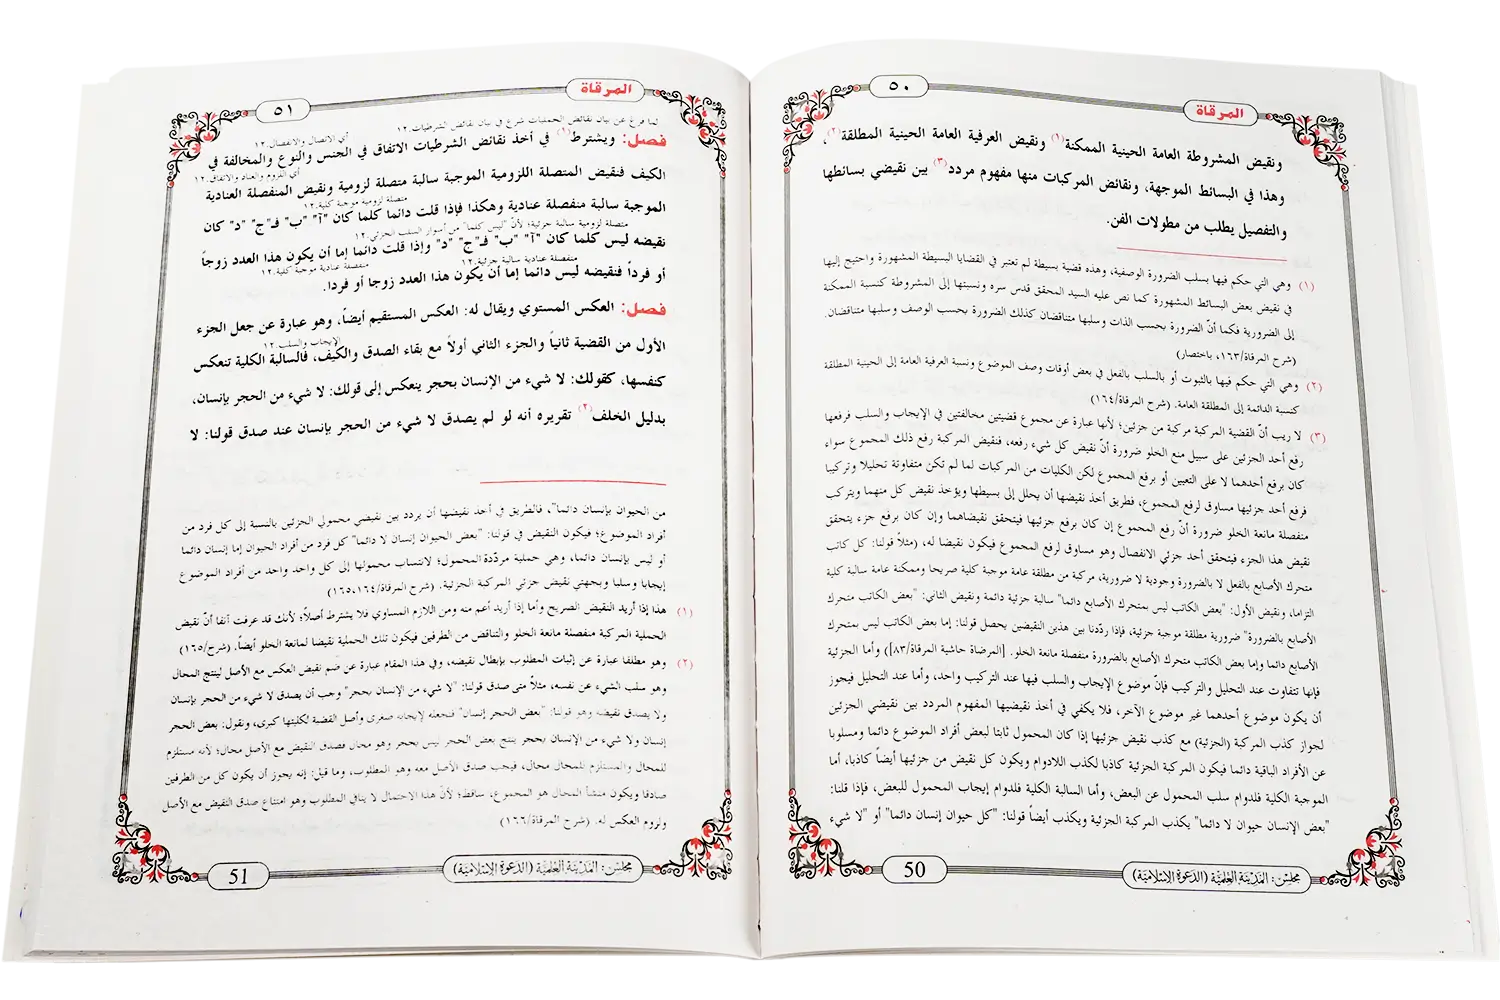 المرقاة
٥٠
ونقيض المشروطة العامة الحينية الممكنة(١) ونقيض العرفية العامة الحينية المطلقة(٢)،
وهذا في البسائط الموجهة، ونقائض المركبات منها مفهوم مردد(٣) بين نقيضي بسائطها
والتفصيل يطلب من مطولات الفن.
(١) وهي التي حكم فيها بسلب الضرورة الوصفية، وهذه قضية بسيطة لم تعتبر في القضايا البسيطة المشهورة واحتيج إليها
في نقيض بعض البسائط المشهورة كما نص عليه السيد المحقق قدس سره ونسبتها إلى المشروطة كنسبة الممكنة
إلى الضرورية فكما أنّ الضرورة بحسب الذات وسلبها متناقضان كذلك الضرورة بحسب الوصف وسلبها متناقضان.
(شرح المرقاة/١٦٣، باختصار)
(٢) وهي التي حكم فيها بالثبوت أو بالسلب بالفعل في بعض أوقات وصف الموضوع ونسبة العرفية العامة إلى الحينية المطلقة
كنسبة الدائمة إلى المطلقة العامة. (شرح المرقاة/١٦٤)
(٣) لا ريب أنّ القضية المركبة مركبة من جزئين؛ لأنها عبارة عن مجموع قضيتين مخالفتين في الإيجاب والسلب فرفعها
رفع أحد الجزئين على سبيل منع الخلو ضرورة أنّ نقيض كل شيء رفعه، فنقيض المركبة رفع ذلك المجموع سواء
كان برفع أحدهما لا على التعيين أو برفع المجموع لكن الكليات من المركبات لما لم تكن متفاوتة تحليلا وتركيبا
فرفع أحد جزئيها مساوق لرفع المجموع، فطريق أخذ نقيضها أن يحلل إلى بسيطها ويؤخذ نقيض كل منهما ويتركب
منفصلة مانعة الخلو ضرورة أنّ رفع المجموع إن كان برفع جزئيها فيتحقق نقيضاهما وإن كان برفع جزء يتحقق
نقيض هذا الجزء فيتحقق أحد جزئي الانفصال وهو مساوق لرفع المجموع فيكون نقيضا له، (مثلاً قولنا: كل كاتب
متحرك الأصابع بالفعل لا بالضرورة وجودية لا ضرورية، مركبة من مطلقة عامة موجبة كلية صريحا وممكنة عامة سالبة كلية
التزاما، ونقيض الأول: "بعض الكاتب ليس بمتحرك الأصابع دائما" سالبة جزئية دائمة ونقيض الثاني: "بعض الكاتب متحرك
الأصابع بالضرورة" ضرورية مطلقة موجبة جزئية، فإذا ردّدنا بين هذين النقيضين يحصل قولنا: إما بعض الكاتب ليس بمتحرك
الأصابع دائما وإما بعض الكاتب متحرك الأصابع بالضرورة منفصلة مانعة الخلو. [المرضاة حاشية المرقاة/٨٣]) وأما الجزئية
فإنها تتفاوت عند التحليل والتركيب فإنّ موضوع الإيجاب والسلب فيها عند التركيب واحد، وأما عند التحليل فيجوز
أن يكون موضوع أحدهما غير موضوع الآخر، فلا يكفي في أخذ نقيضيها المفهوم المردد بين نقيضي الجزئين
لجواز كذب المركبة (الجزئية) مع كذب نقيض جزئيها إذا كان المحمول ثابتا لبعض أفراد الموضوع دائما ومسلوبا
عن الأفراد الباقية دائما فيكون المركبة الجزئية كاذبا لكذب اللادوام ويكون كل نقيض من جزئيها أيضاً كاذبا، أما
الموجبة الكلية فلدوام سلب المحمول عن البعض، وأما السالبة الكلية فلدوام إيجاب المحمول للبعض، فإذا قلنا:
"بعض الإنسان حيوان لا دائما" يكذب المركبة الجزئية ويكذب أيضاً قولنا: "كل حيوان إنسان دائما" أو "لا شيء
مجلس: المدينة العلمية (الدعوة الإسلامية)
50
المرقاة
٥١
لما فرغ عن بيان نقائض الحمليات شرع في بيان نقائض الشرطيات.١٢
أي الاتصال والانفصال.١٢
فصل: ويشترط(١) في أخذ نقائض الشرطيات الاتفاق في الجنس والنوع والمخالفة في
أي اللزوم والعناد والاتفاق.١٢
الكيف فنقيض المتصلة اللزومية الموجبة سالبة متصلة لزومية ونقيض المنفصلة العنادية
الموجبة سالبة منفصلة عنادية وهكذا فإذا قلت دائما كلما كان "آ" "ب" فـ"ج" "د" كان
متصلة لزومية موجبة كلية.١٢
متصلة لزومية سالبة جزئية؛ لأنّ "ليس كلما" من أسوار السلب الجزئي.١٢
نقيضه ليس كلما كان "آ" "ب" فـ"ج" "د" وإذا قلت دائما إما أن يكون هذا العدد زوجاً
منفصلة عنادية سالبة جزئية.١٢
منفصلة عنادية موجبة كلية.١٢
أو فرداً فنقيضه ليس دائما إما أن يكون هذا العدد زوجا أو فردا.
فصل: العكس المستوي ويقال له: العكس المستقيم أيضاً، وهو عبارة عن جعل الجزء
الأول من القضية ثانياً والجزء الثاني أولاً مع بقاء الصدق والكيف، فالسالبة الكلية تنعكس
الإيجاب والسلب.١٢
كنفسها، كقولك: لا شيء من الإنسان بحجر ينعكس إلى قولك: لا شيء من الحجر بإنسان،
بدليل الخلف(٢) تقريره أنه لو لم يصدق لا شيء من الحجر بإنسان عند صدق قولنا: لا
من الحيوان بإنسان دائما"، فالطريق في أخذ نقيضها أن يردد بين نقيضي محمولي الجزئين بالنسبة إلى كل فرد من
أفراد الموضوع؛ فيكون النقيض في قولنا: "بعض الحيوان إنسان لا دائما" كل فرد من أفراد الحيوان إما إنسان دائما
أو ليس بإنسان دائما، وهي حملية مردّدة المحمول؛ لانتساب محمولها إلى كل واحد واحد من أفراد الموضوع
إيجابا وسلبا وبجهتي نقيض جزئي المركبة الجزئية. (شرح المرقاة/١٦٥،١٦٤)
(١) هذا إذا أريد النقيض الصريح وأما إذا أريد أعم منه ومن اللازم المساوي فلا يشترط أصلاً؛ لأنك قد عرفت آنفا أنّ نقيض
الحملية المركبة منفصلة مانعة الخلو والتناقض من الطرفين فيكون تلك الحملية نقيضا لمانعة الخلو أيضاً. (شرح/١٦٥)
(٢) وهو مطلقا عبارة عن إثبات المطلوب بإبطال نقيضه، وفي هذا المقام عبارة عن ضم نقيض العكس مع الأصل لينتج المحال
وهو سلب الشيء عن نفسه، مثلاً متى صدق قولنا: "لا شيء من الإنسان بحجر" وجب أن يصدق لا شيء من الحجر بإنسان
ولا يصدق نقيضه وهو قولنا: "بعض الحجر إنسان" فنجعله لإيجابه صغرى وأصل القضية لكليتها كبرى، ونقول: بعض الحجر
إنسان ولا شيء من الإنسان بحجر ينتج بعض الحجر ليس بحجر وهو محال فصدق النقيض مع الأصل محال؛ لأنه مستلزم
للمحال والمستلزم للمحال محال، فيجب صدق الأصل معه وهو المطلوب، وما قيل: إنه يجوز أن يكون كل من الطرفين
صادقا ويكون منشأ المحال هو المجموع، ساقط؛ لأنّ هذا الاحتمال لا ينافي المطلوب وهو امتناع صدق النقيض مع الأصل
ولزوم العكس له. (شرح المرقاة/١٦٦)
مجلس: المدينة العلمية (الدعوة الإسلامية)
51